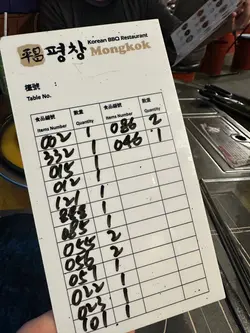 平昌 평창 Korean BBQ Restaurant
Mongkok
檯號
Table No. :
食品編號 數量 食品編號 數量
Items Number Quantity Items Number Quantity
002 1 086 2
332 1 046 1
015 1
012 1
121 1
888 1
085 1
055 2
056 2
057 1
022 1
023 1
101 1